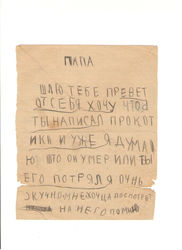 ПАПА
ШЛЮ ТЕБЕ ПРЕВЕТ
ОТ СЕБЯ ХОЧУ ЧТОБ
ТЫ НАПИСАЛ ПРО КОТ
ИКА И УЖЕ Я ДУМАЛ
Ю ШТО ОН УМЕР ИЛИ ТЫ
ЕГО ПОТРЯЛ Я ОЧНЬ
СКУЧ МНЕ ХОЧЦА ПОСМОТРЕТ
НА НЕГО